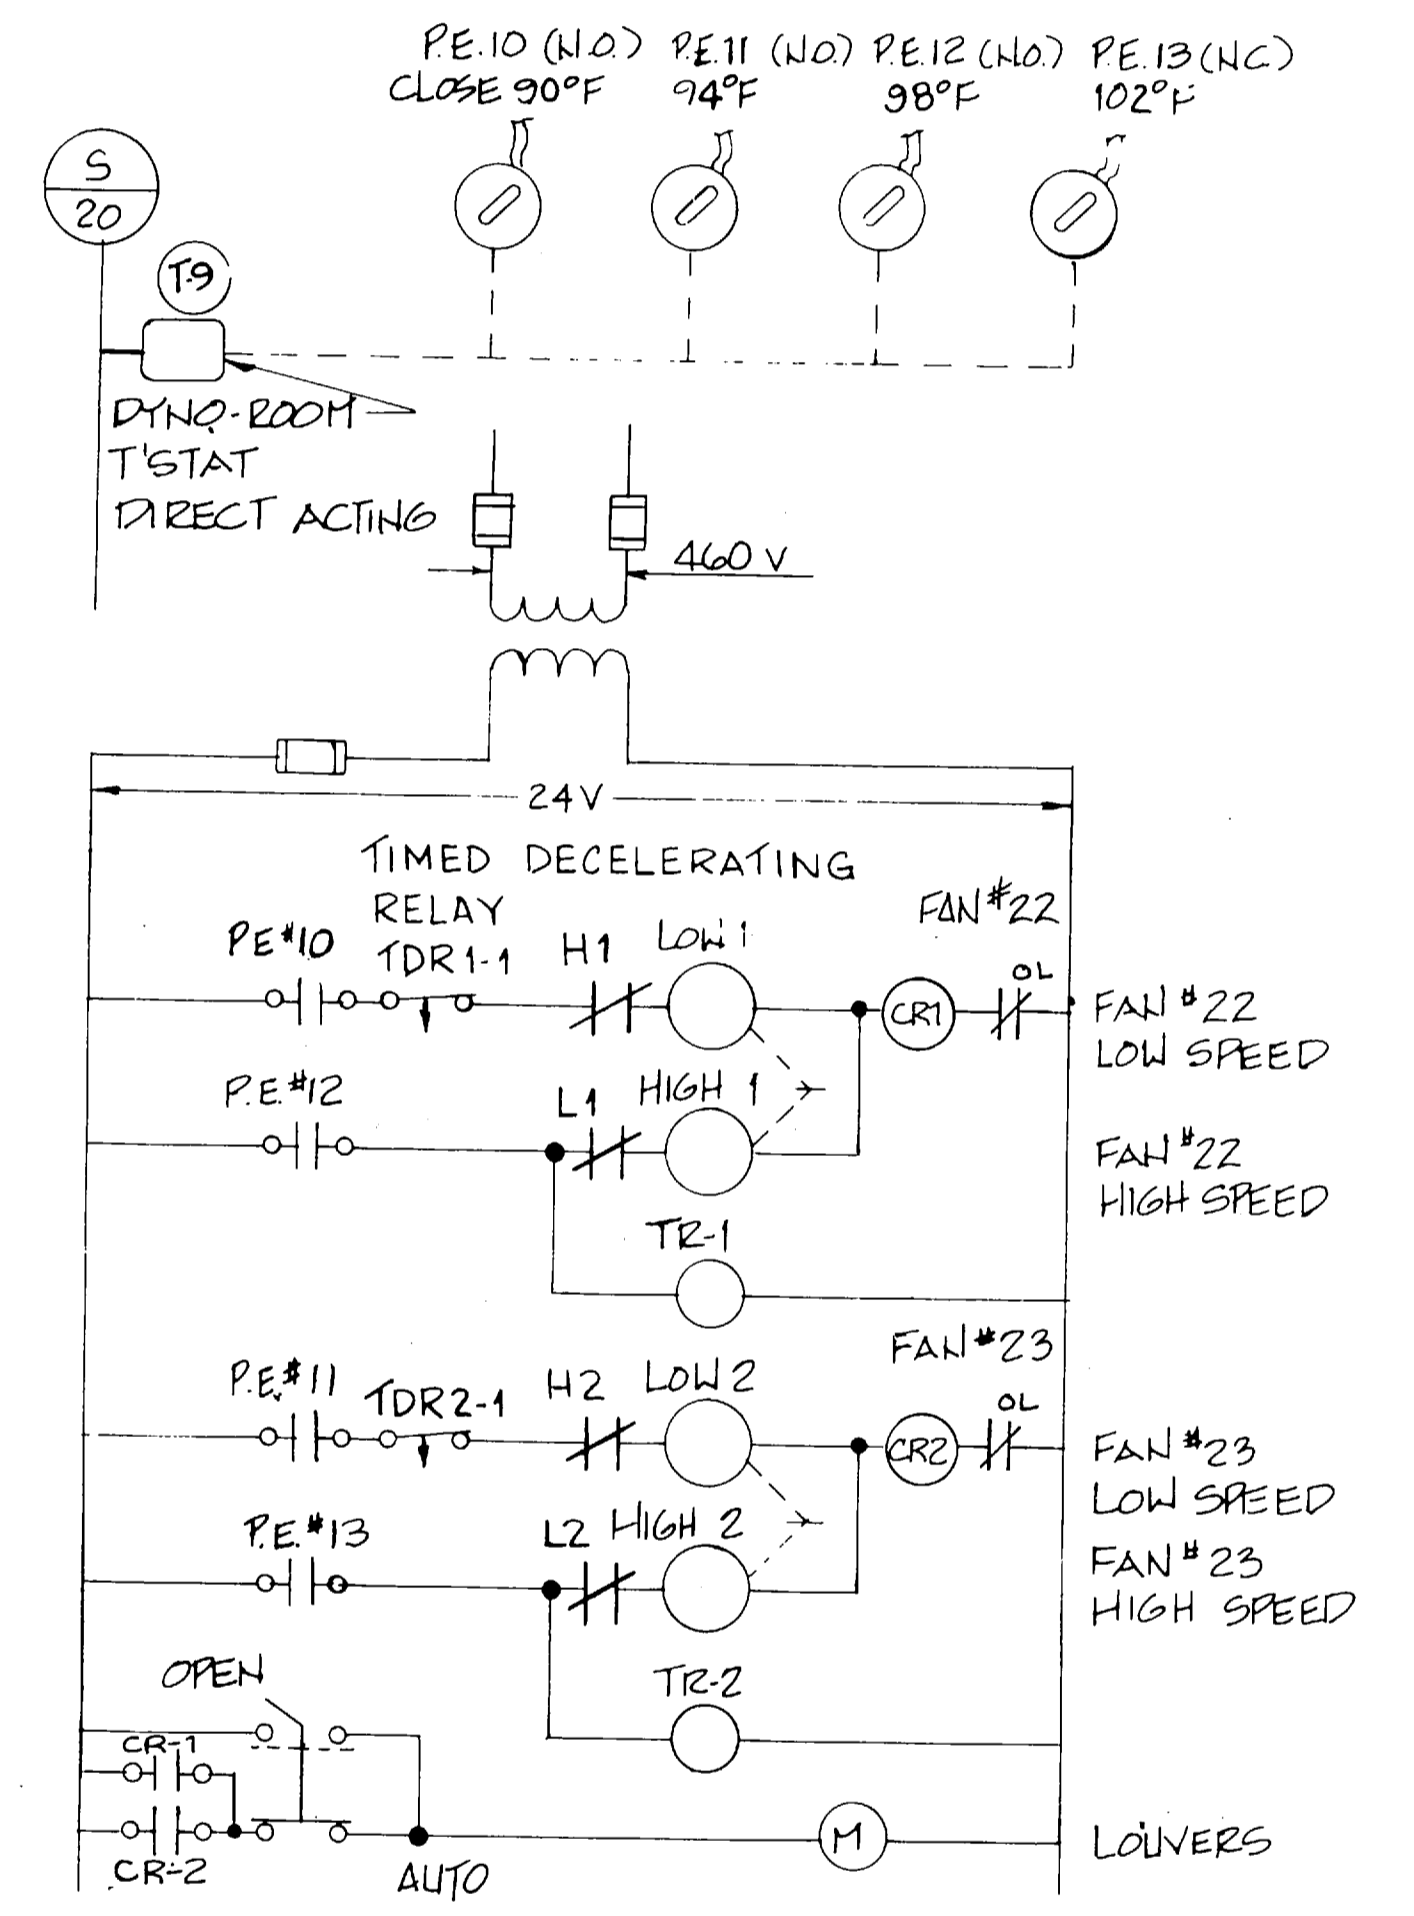 P.E.10 (N.O.) P.E.11 (N.O.) P.E.12 (N.O.) P.E.13 (N.C.)
CLOSE 90°F 94°F 98°F 102°F
S
20
T-9
DYNO-ROOM
T'STAT
DIRECT ACTING
460 V
24V
TIMED DECELERATING
RELAY
FAN #22
PE #10 TDR1-1 H1 LOW 1
CR1 OL
FAN #22
LOW SPEED
P.E. #12 L1 HIGH 1
FAN #22
HIGH SPEED
TR-1
FAN #23
P.E. #11 TDR2-1 H2 LOW 2
CR2 OL
FAN #23
LOW SPEED
P.E. #13 L2 HIGH 2
FAN #23
HIGH SPEED
OPEN
TR-2
CR-1
M
LOUVERS
CR-2
AUTO